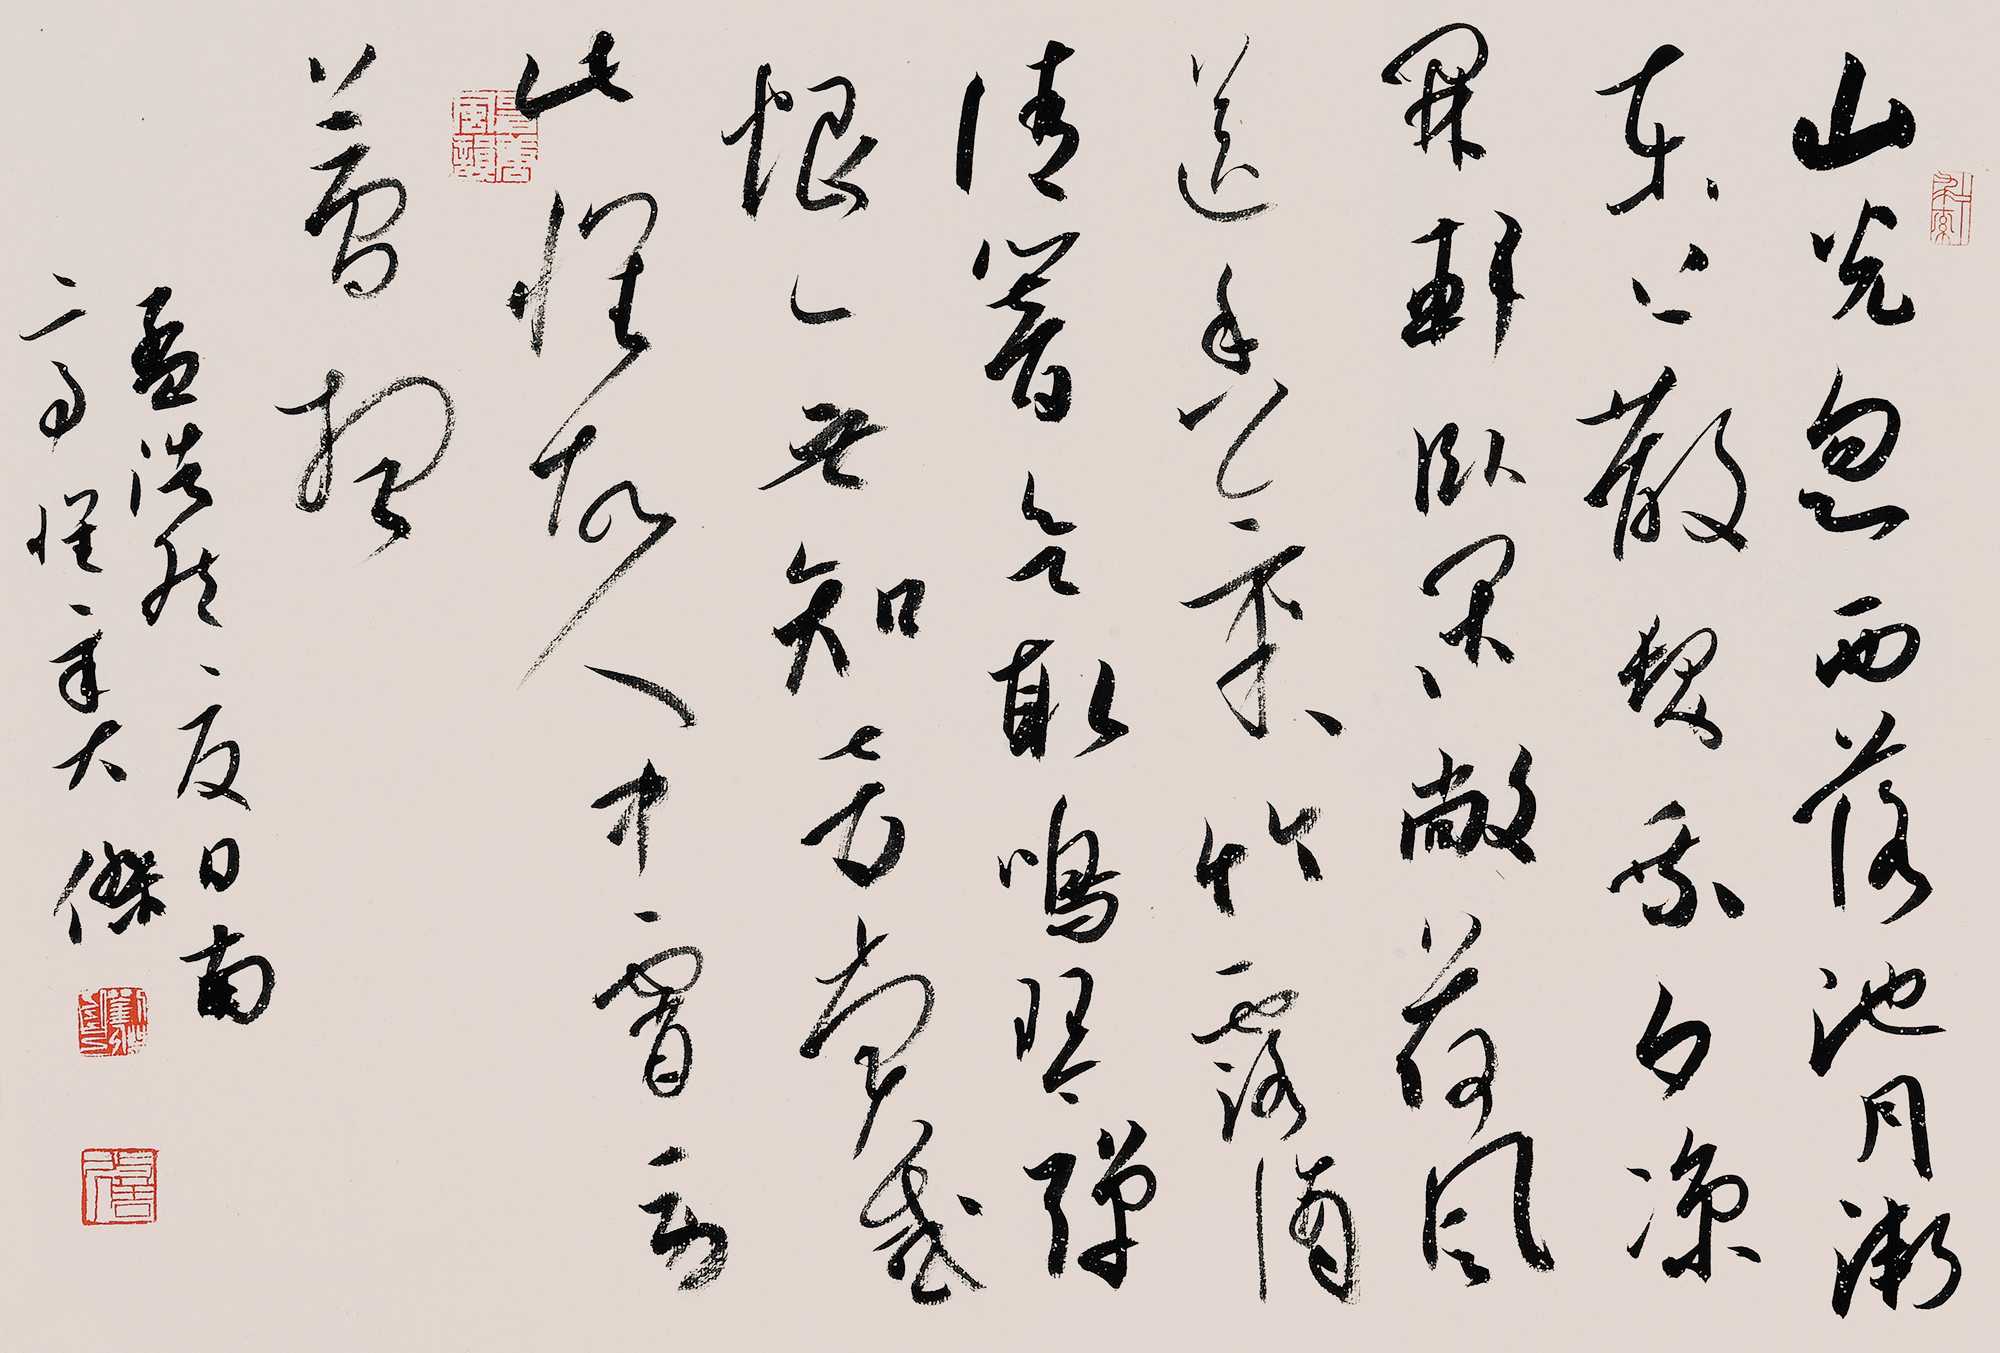 山光忽西落池月漸
東上散髮乘夕涼
開軒臥閑敞荷風
送香氣乘竹露滴
清響欲取鳴琴彈
恨無知音賞感
此懷故人中宵勞
夢想
孟浩然夏日南
亭懷辛大 傑